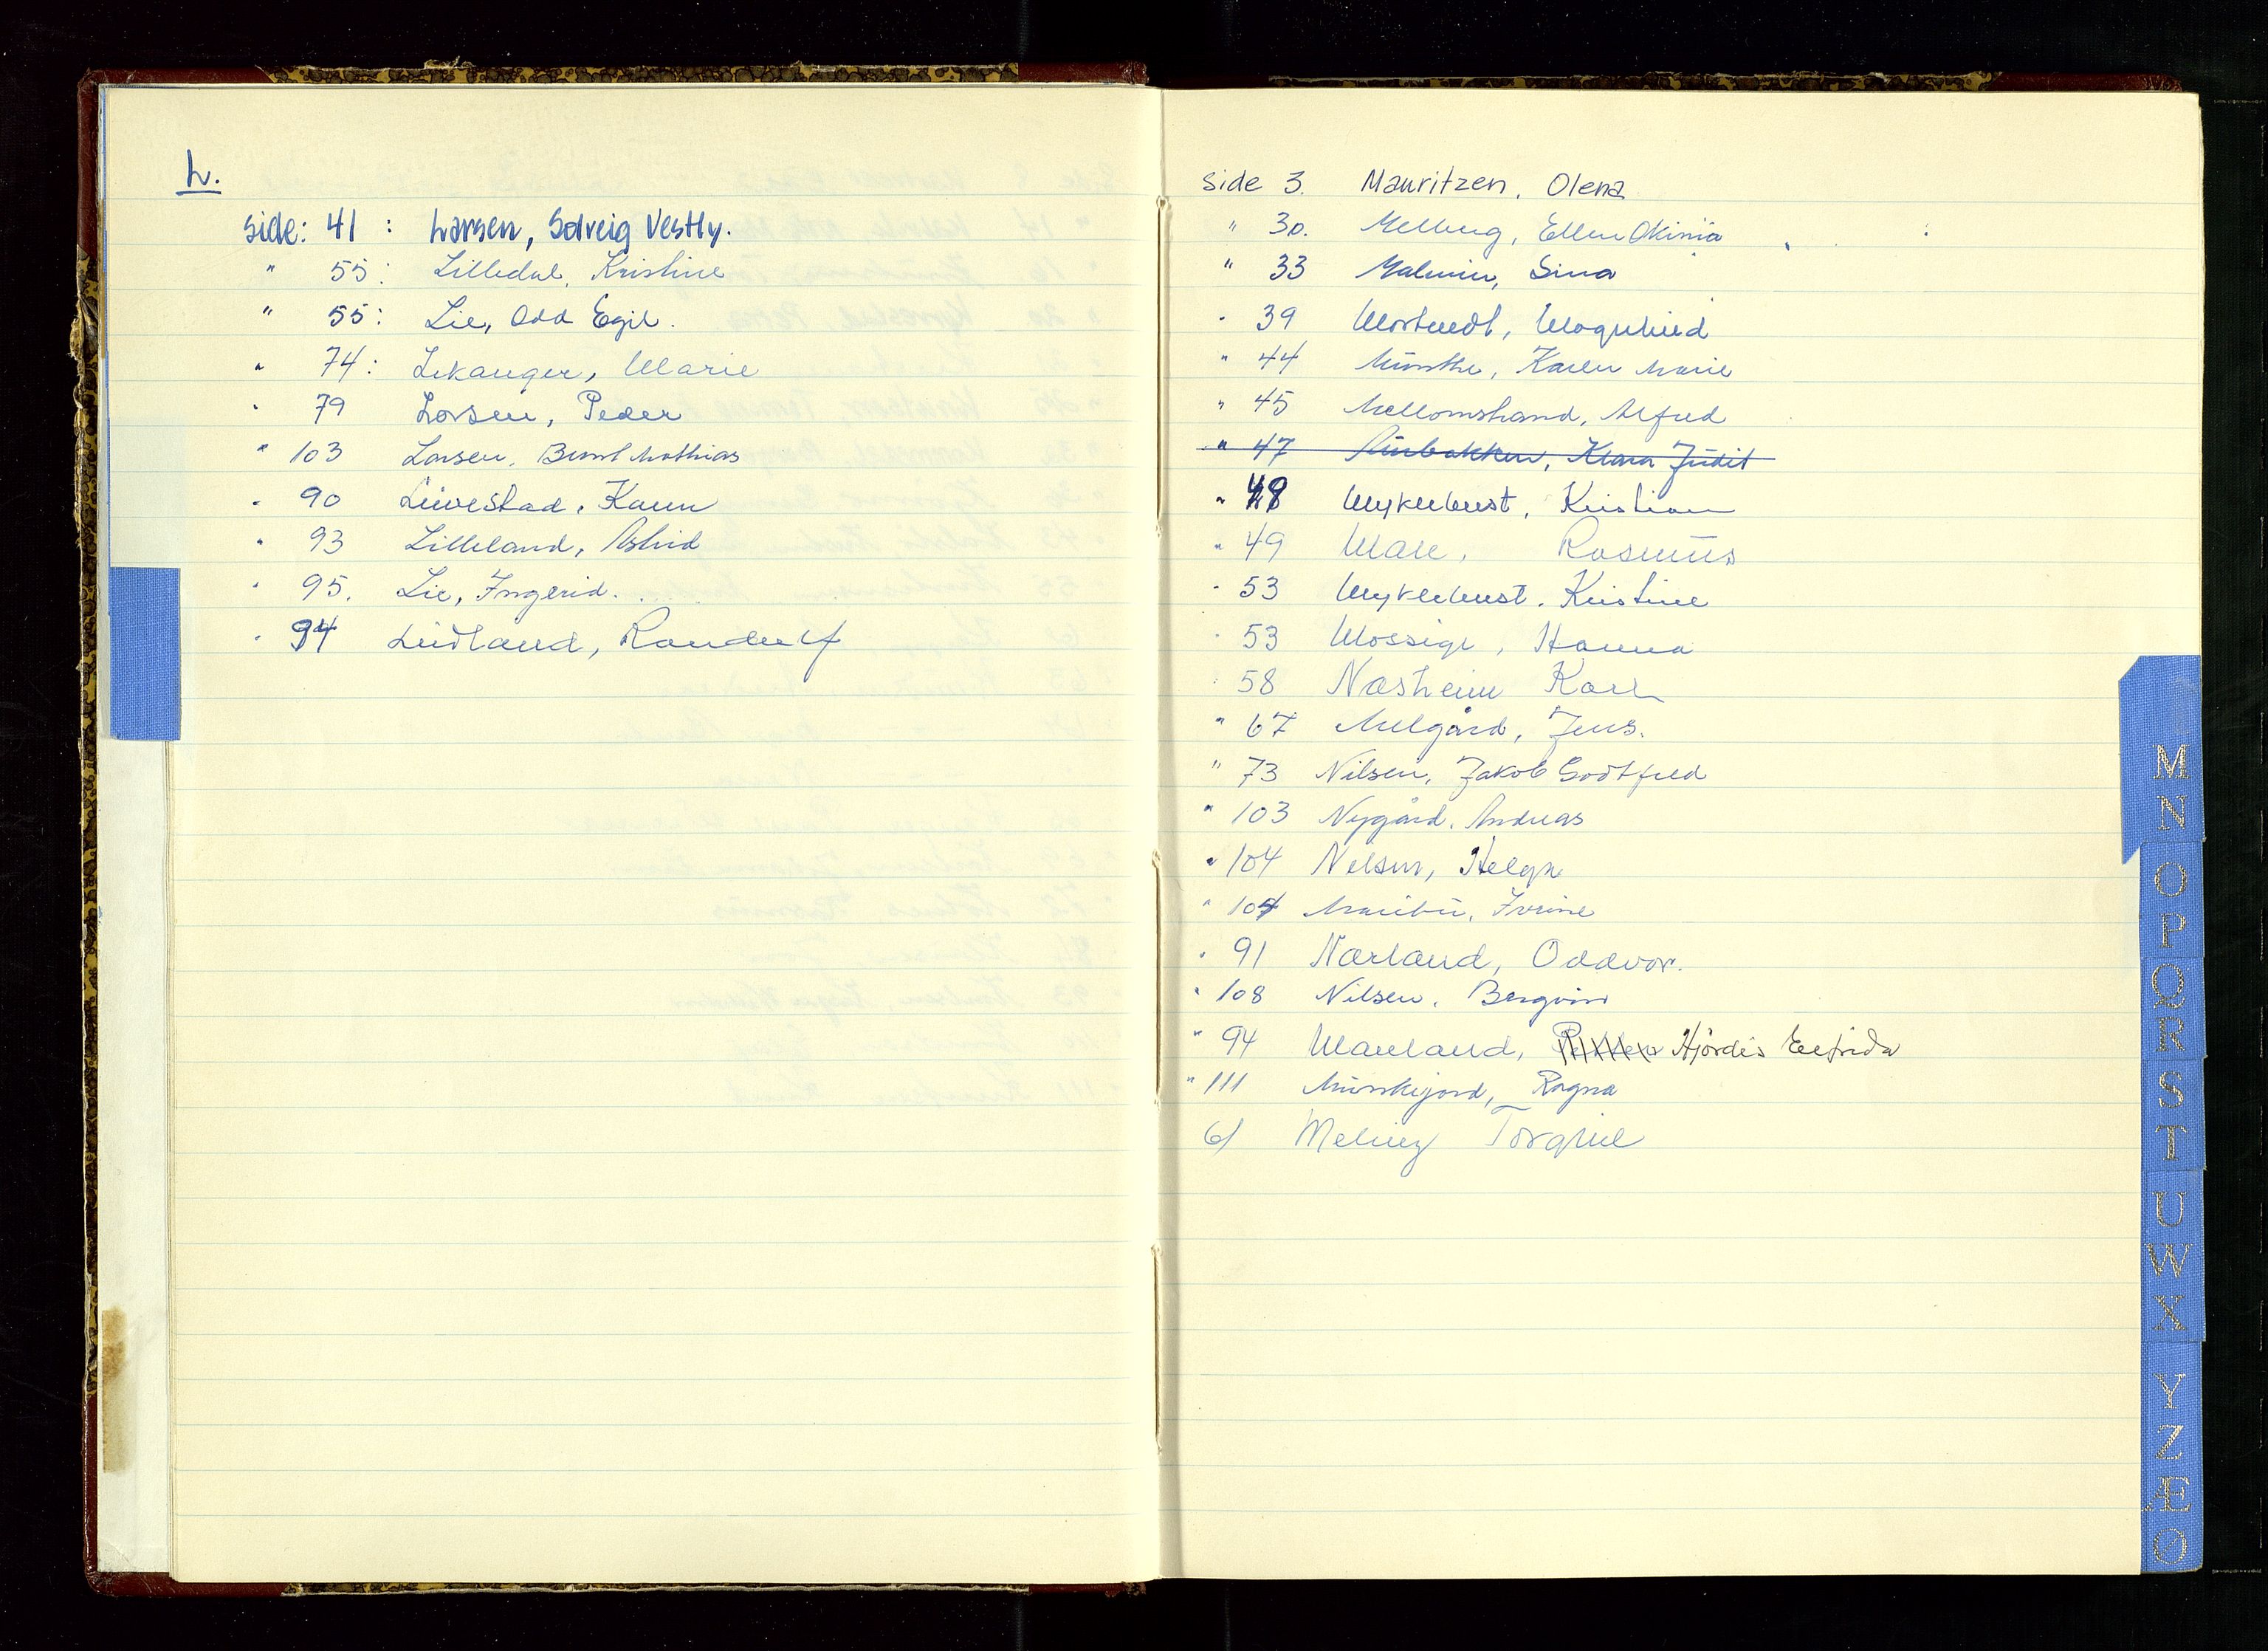 L.
side: 41 : Larsen, Solveig Vestly.
" 55: Lilledal, Kristine
" 55: Lie, Odd Egil.
" 74: Lekanger, Marie
" 79 Larsen, Peder
" 103 Larsen, Bernt Mathias
" 90 Livestad, Karen
" 93 Lilleland, Astrid
" 95. Lie, Ingerid.
" 94 Ludland, Randulf
side 3. Mauritzen, Olena
" 30. Melberg, Ellen Okinia
" 33 Malmin, Sina
" 39 Mostuedt, Magnhild
" 44 Munthe, Karen Marie
" 45 Mellomstrand, Alfred
" 47 Aurbakken, Klara Judit
" 48 Myklebust, Kristian
" 49 Mæle, Rasmus
" 53 Myklebust, Kristine
" 53 Mossige, Hanna
" 58 Næsheim Karl
" 67 Melgård, Jens.
" 73 Nilsen, Jakob Godtfred
" 103 Nygård, Andreas
" 104 Nelsen, Helga
" 104 Maribu, Ivrine
" 91 Nærland, Oddvar.
" 108 Nilsen, Bergvin
" 94 Mæland, Hjørdis Elfrida
" 111 Munkejord, Ragna
61 Meling Torghil
M
N
O
P
Q
R
S
T
U
W
X
Y
Z
Æ
Ø